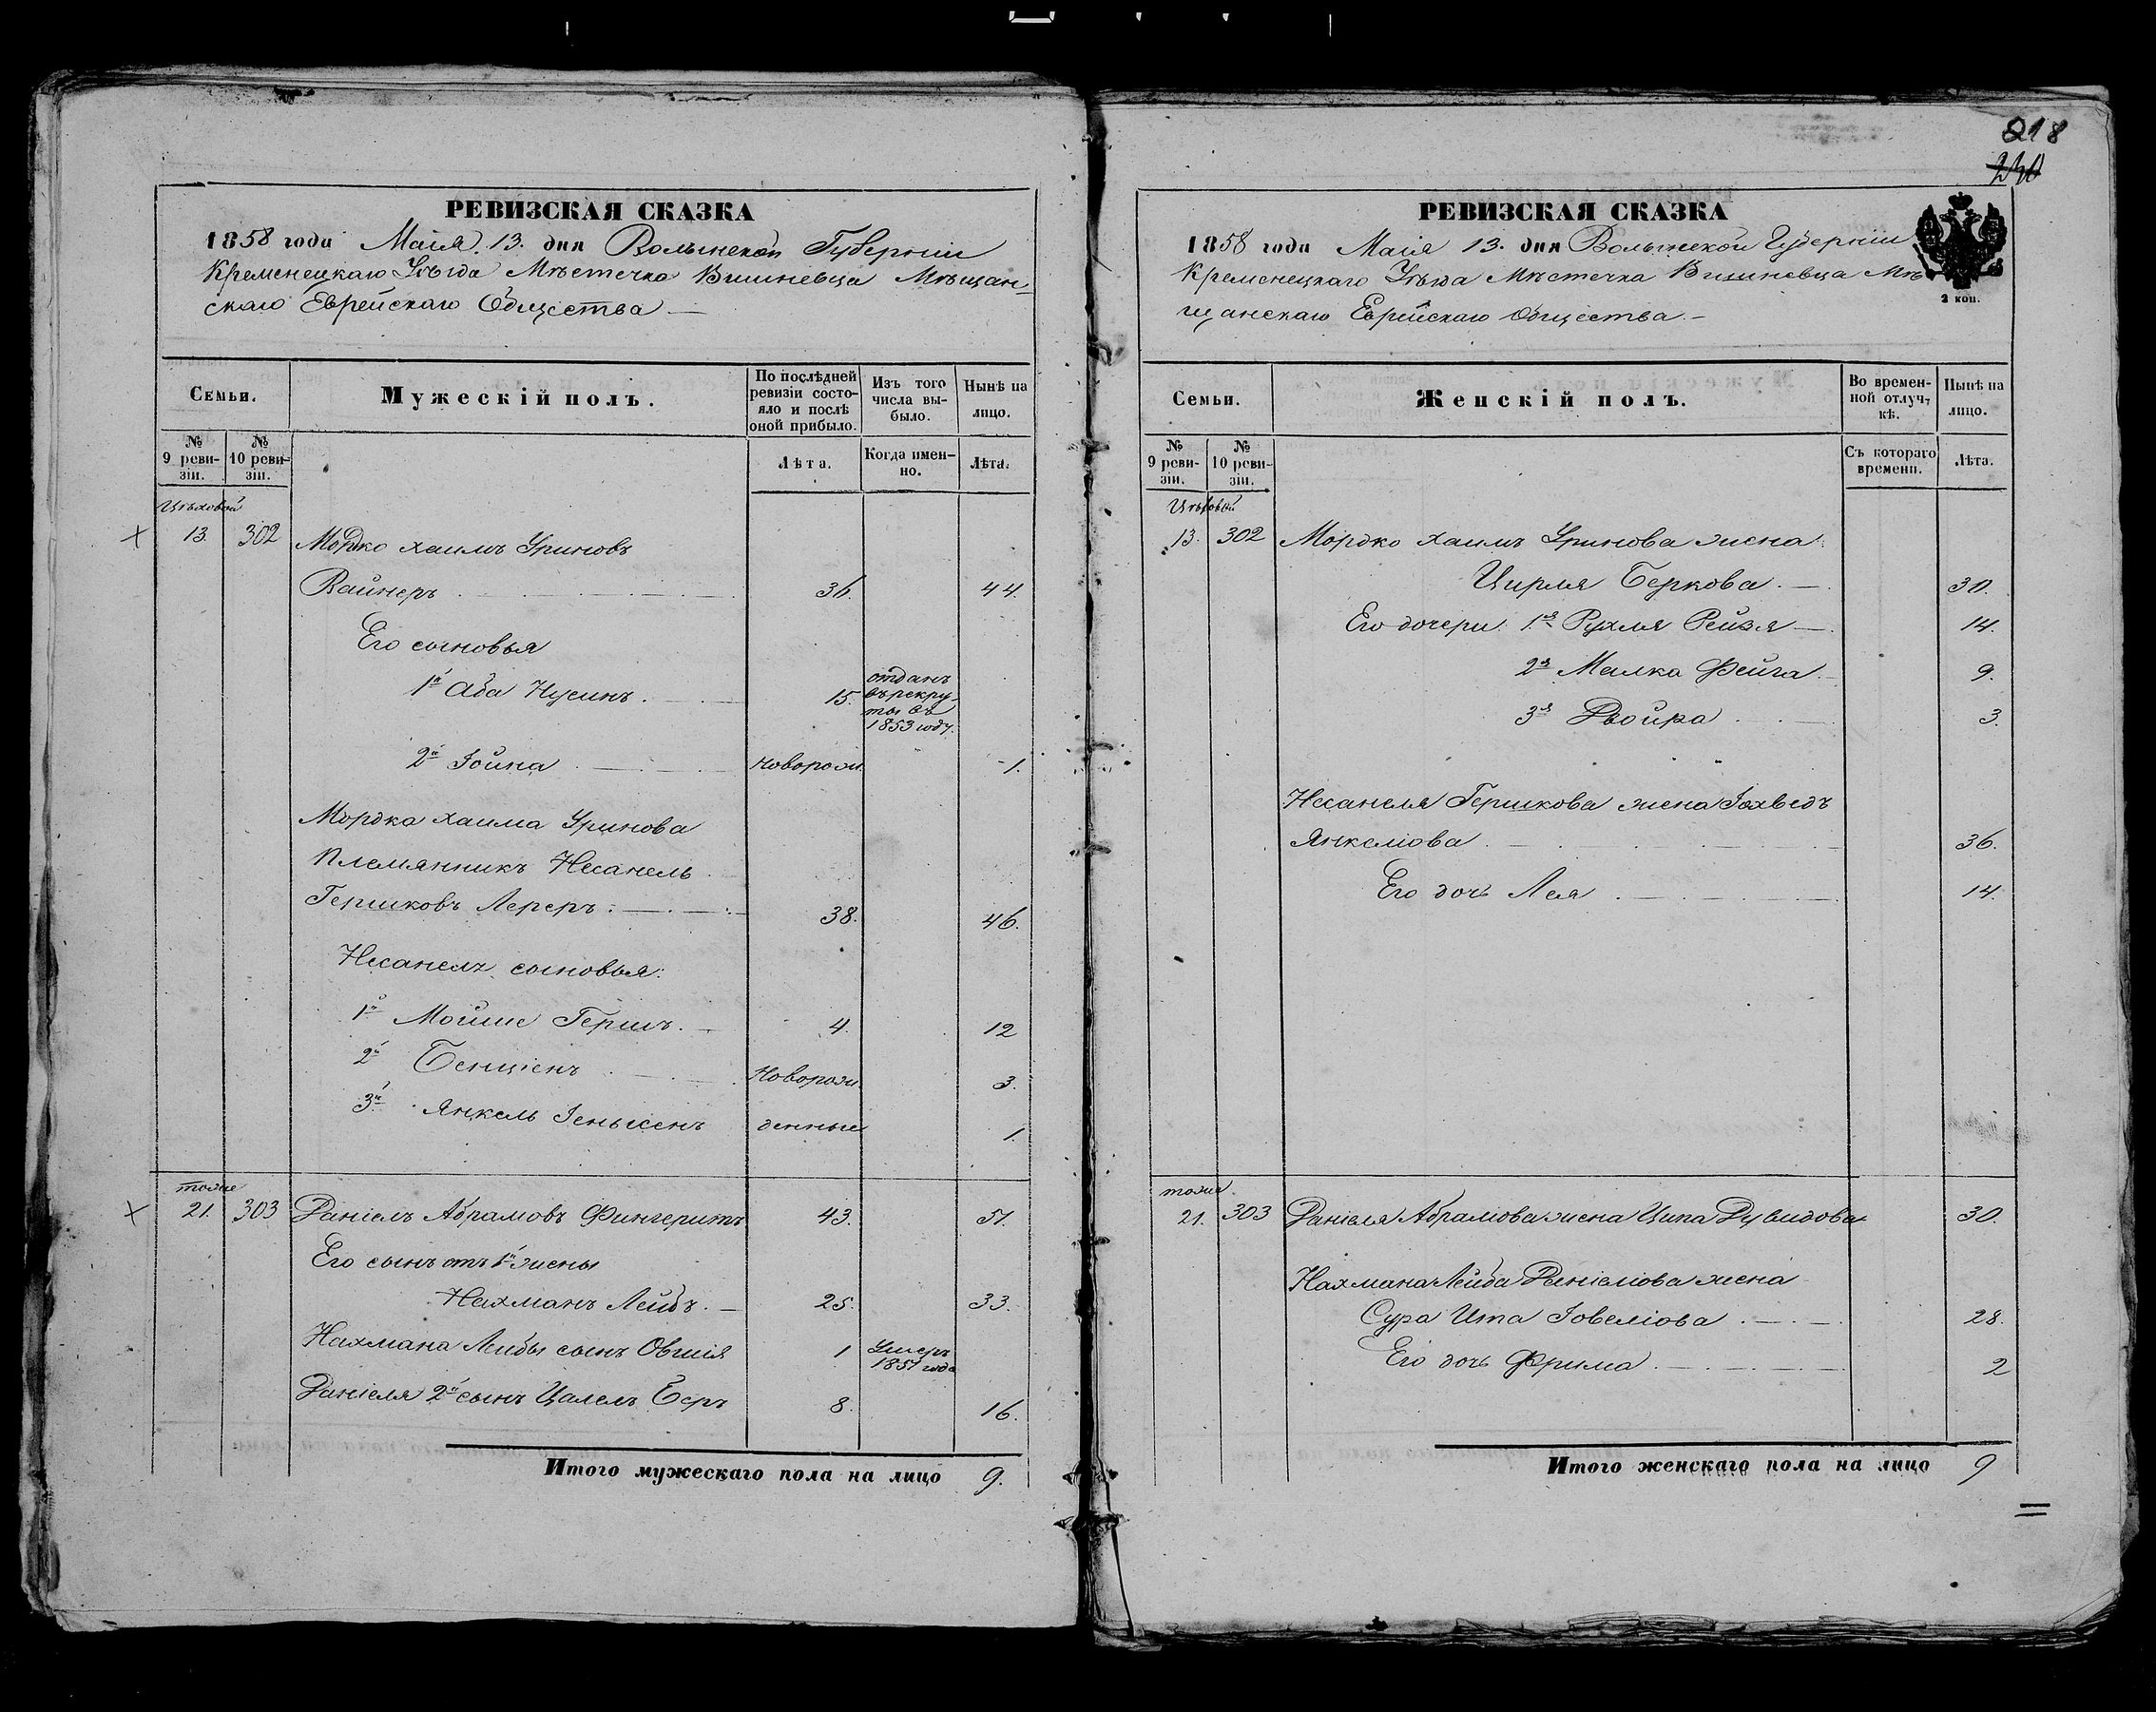 РЕВИЗСКАЯ СКАЗКА
1858 года Маія 13. дня Волынской Губерніи
Кременецкаго Уѣзда Мѣстечка Вишневца Мѣщан-
скаго Еврейскаго Общества
Семьи.
Мужескій полъ.
По послѣдней ревизіи состо-
яло и послѣ оной прибыло.
Изъ того числа вы-
было.
Нынѣ на лицо.
№ 9 реви-
зіи.
№ 10 реви-
зіи.
Лѣта.
Когда имен-
но.
Лѣта.
Цѣховой
13. 302 Мордко Хаимъ Уриновъ
Вайнеръ 36. 44.
Его сыновья
1й Аба Нусинъ. 15. отданъ
въ рекру-
ты въ
1853 году.
2й Іойна новорож. 1.
Мордка Хаима Уринова
Племянникъ Несанель
Гершковъ Лереръ. 38. 46.
Несанеля сыновья:
1й Мойше Гершъ. 4. 12
2й Бенціенъ Новорож 3.
3й Янкель денные 1.
тоже
21. 303 Даніелъ Абрамовъ Фингеритъ 43. 51.
Его сынъ отъ 1й жены
Нахманъ Лейбъ. 25. 33.
Нахмана Лейбы сынъ Овшія 1 Умеръ
1851 года
Даніеля 2й сынъ Цалелъ Беръ 8. 16.
Итого мужескаго пола на лицо 9.
218
РЕВИЗСКАЯ СКАЗКА
1858 года Маія 13. дня Волынской Губерніи
Кременецкаго Уѣзда Мѣстечка Вишневца Мѣ-
щанскаго Еврейскаго Общества.
2 коп.
Семьи.
Женскій полъ.
Во времен-
ной отлуч-
кѣ.
Нынѣ на лицо.
№ 9 реви-
зіи.
№ 10 реви-
зіи.
Съ котораго времени.
Лѣта.
Цѣховой
13. 302 Мордко Хаимъ Уринова жена
Цирля Беркова. 30.
Его дочери 1я Рухля Рейзя 14.
2я Малка Фейга 9.
3я Двойра 3.
Несанеля Гершкова жена Іохведъ
Янкеліова 36.
Его дочь Лея 14.
тоже
21. 303 Даніеля Абраміова жена Ципа Дувидова 30.
Нахмана Лейба Даніеліова жена
Сура Ита Іовеліова 28.
Его дочь Фрима 2
Итого женскаго пола на лицо 9